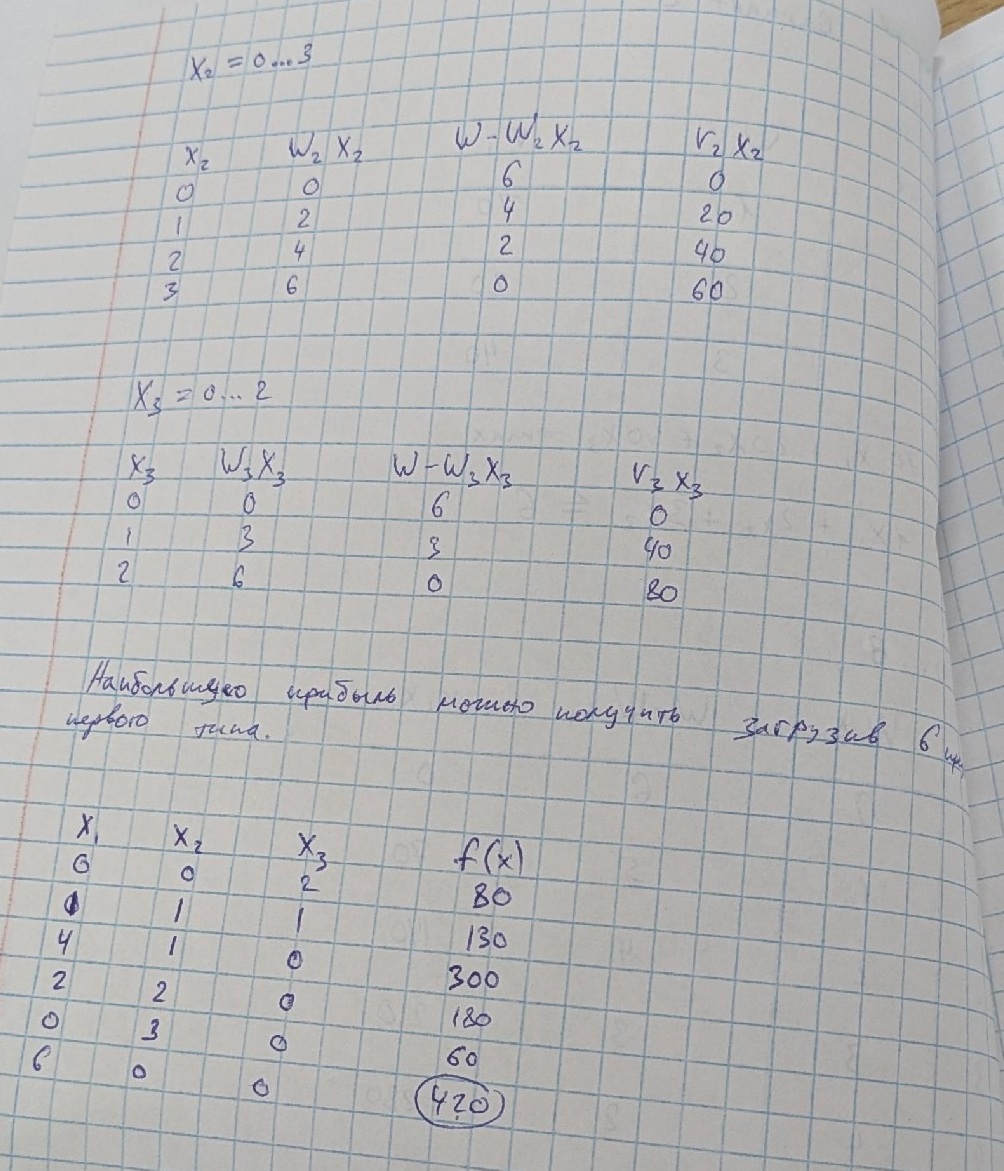 x₂ = 0...3
x₂ W₂ x₂ W-W₂x₂ V₂ x₂
0 0 6 0
1 2 4 20
2 4 2 40
3 6 0 60
x₃ = 0... 2
x₃ W₃x₃ W-W₃x₃ V₃ x₃
0 0 6 0
1 3 3 40
2 6 0 80
Наибольшую прибыль можно получить загрузив 6 шт.
первого типа.
x₁ x₂ x₃ f(x)
0 0 2 80
1 1 1 130
4 1 0 300
2 2 0 180
0 3 0 60
6 0 0 420